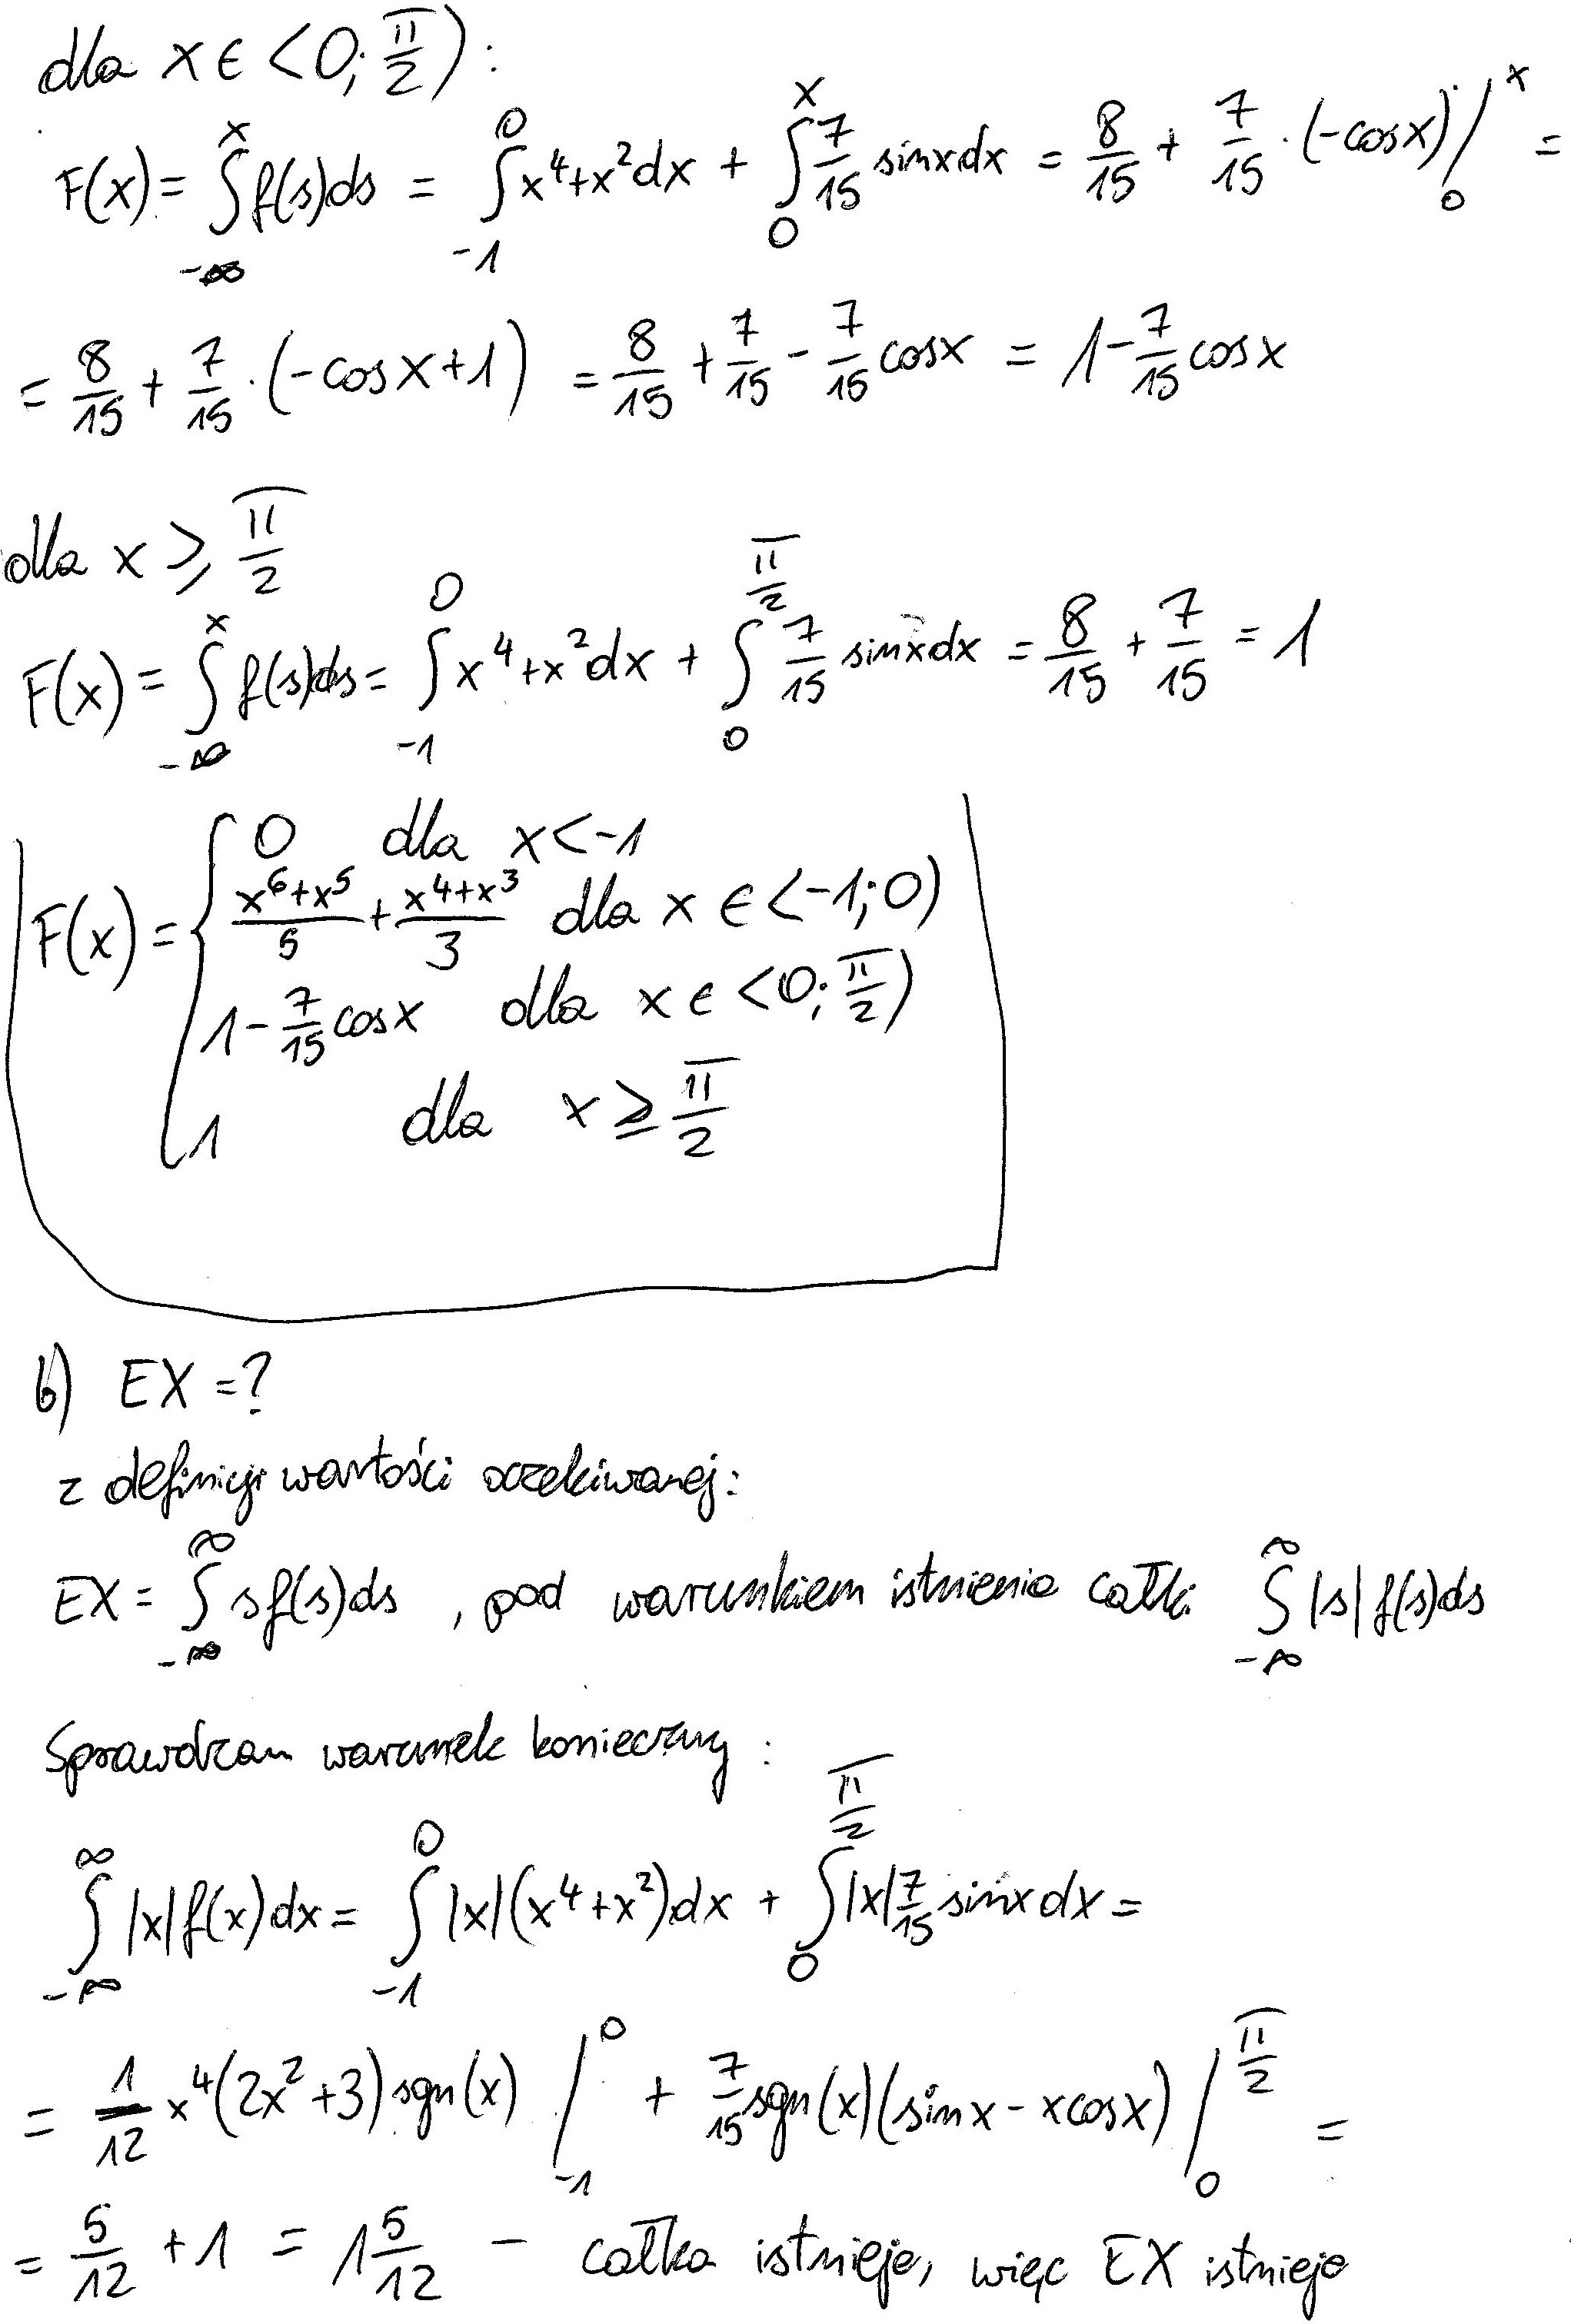 dla x ∈ <0; π/2):
F(x) = ∫_{-∞}^{x} f(s)ds = ∫_{-1}^{0} x^4+x^2 dx + ∫_{0}^{x} 7/15 sinx dx = 8/15 + 7/15 · (-cosx) /_{0}^{x} =
= 8/15 + 7/15 · (-cosx+1) = 8/15 + 7/15 - 7/15 cosx = 1 - 7/15 cosx
dla x ≥ π/2
F(x) = ∫_{-∞}^{x} f(s)ds = ∫_{-1}^{0} x^4+x^2 dx + ∫_{0}^{π/2} 7/15 sinx dx = 8/15 + 7/15 = 1
F(x) = {
0 dla x < -1
(x^6+x^5)/5 + (x^4+x^3)/3 dla x ∈ <-1; 0)
1 - 7/15 cosx dla x ∈ <0; π/2)
1 dla x ≥ π/2
b) EX = ?
z definicji wartości oczekiwanej:
EX = ∫_{-∞}^{∞} sf(s)ds , pod warunkiem istnienia całki ∫_{-∞}^{∞} |s| f(s)ds
Sprawdzam warunek konieczny :
∫_{-∞}^{∞} |x| f(x) dx = ∫_{-1}^{0} |x| (x^4+x^2) dx + ∫_{0}^{π/2} |x| 7/15 sinx dx =
= 1/12 x^4 (2x^2+3) sgn(x) /_{-1}^{0} + 7/15 sgn(x) (sinx - xcosx) /_{0}^{π/2} =
= 5/12 + 1 = 1 5/12 - całka istnieje, więc EX istnieje